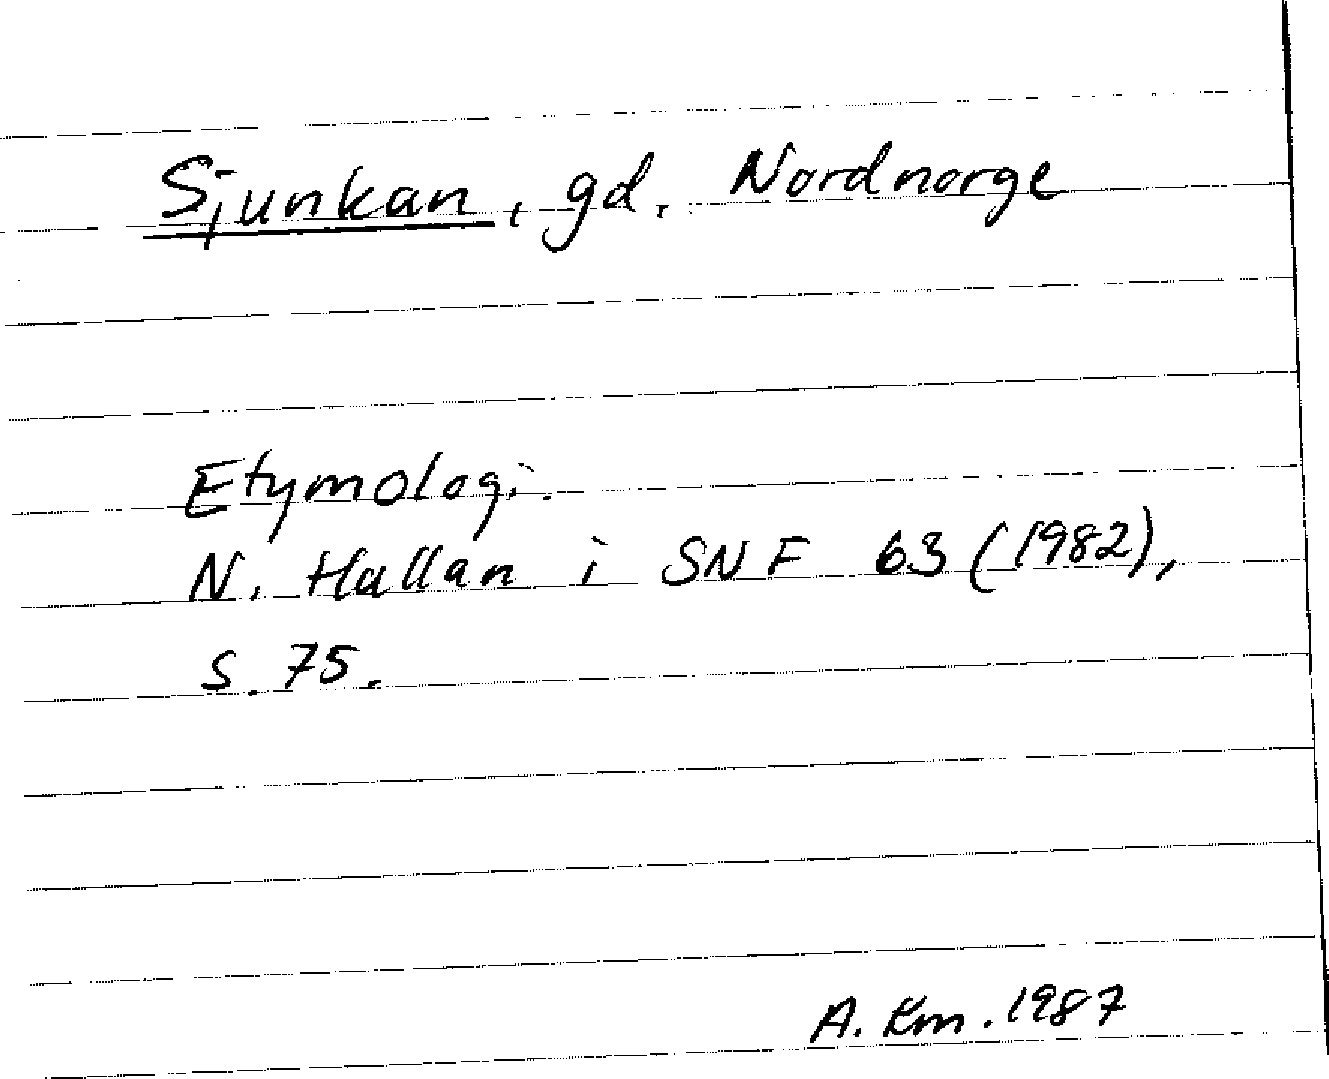 Sjunkan, gd. Nordnorge
Etymologi.
N. Hallan i SNF 63 (1982),
s. 75.
A. Km. 1987